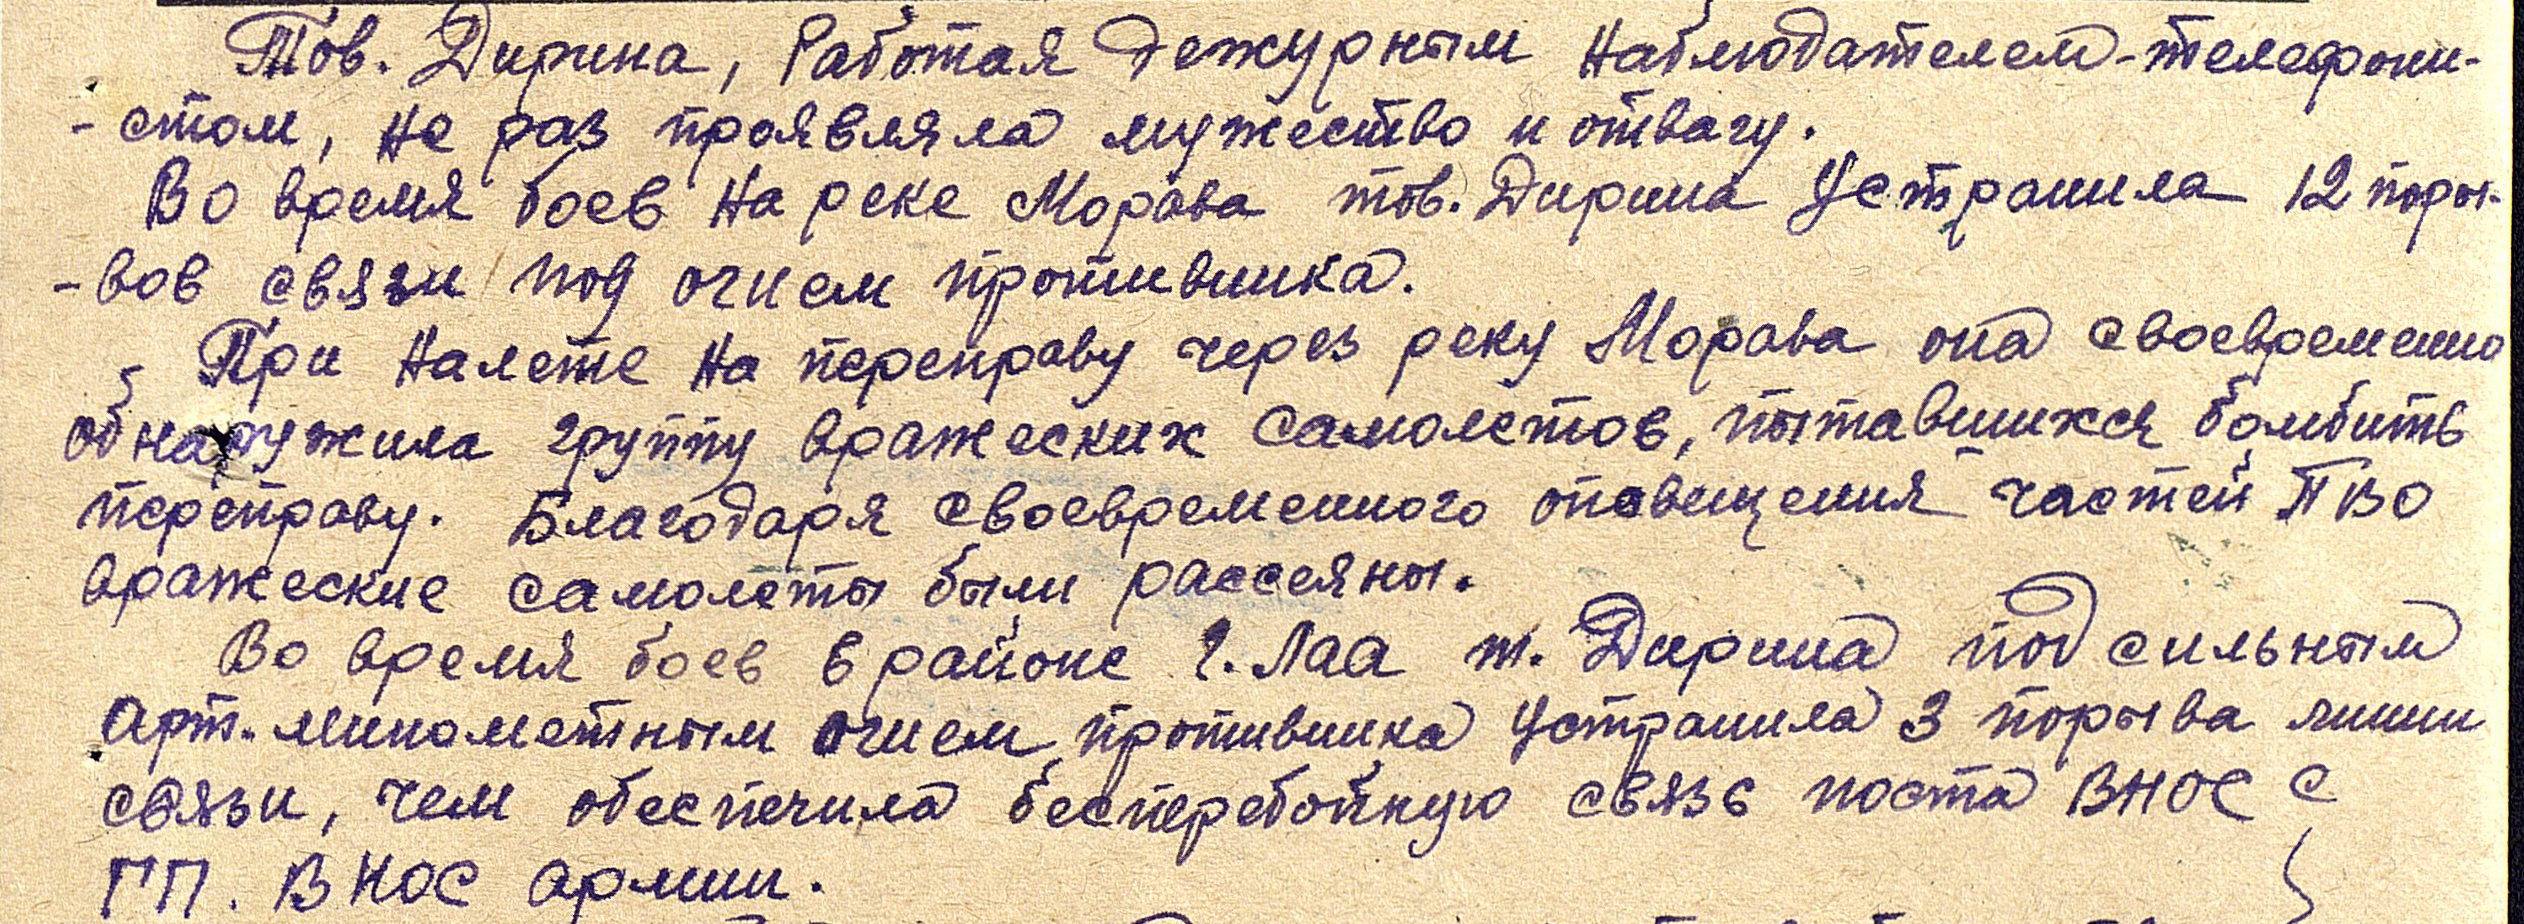 Тов. Дирина, Работая дежурным наблюдателем-телефони-
-стом, не раз проявляла мужество и отвагу.
Во время боев на реке Морава тов. Дирина устранила 12 поры-
-вов связи под огнем противника.
При налете на переправу через реку Морава она своевременно
обнаружила группу вражеских самолетов, пытавшихся бомбить
переправу. Благодаря своевременного оповещения частей ПВО
вражеские самолеты были рассеяны.
Во время боев в районе г. Лаа т. Дирина под сильным
арт.-минометным огнем противника устранила 3 порыва линии
связи, чем обеспечила бесперебойную связь поста ВНОС с
ГП. ВНОС армии.